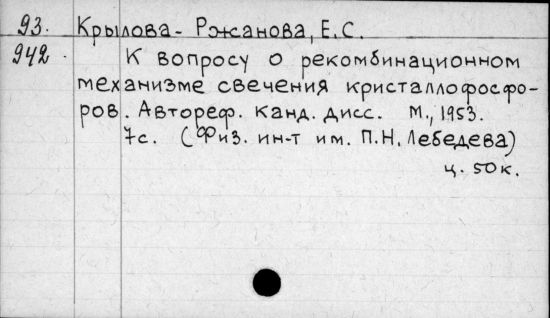 93. Крылова-Ржанова, Е.С.
942. К вопросу о рекомбинационном
механизме свечения кристаллофосфо-
ров. Автореф. канд. дисс. М., 1953.
7с. (Физ. ин-т им. П.Н. Лебедева)
ц. 50к.